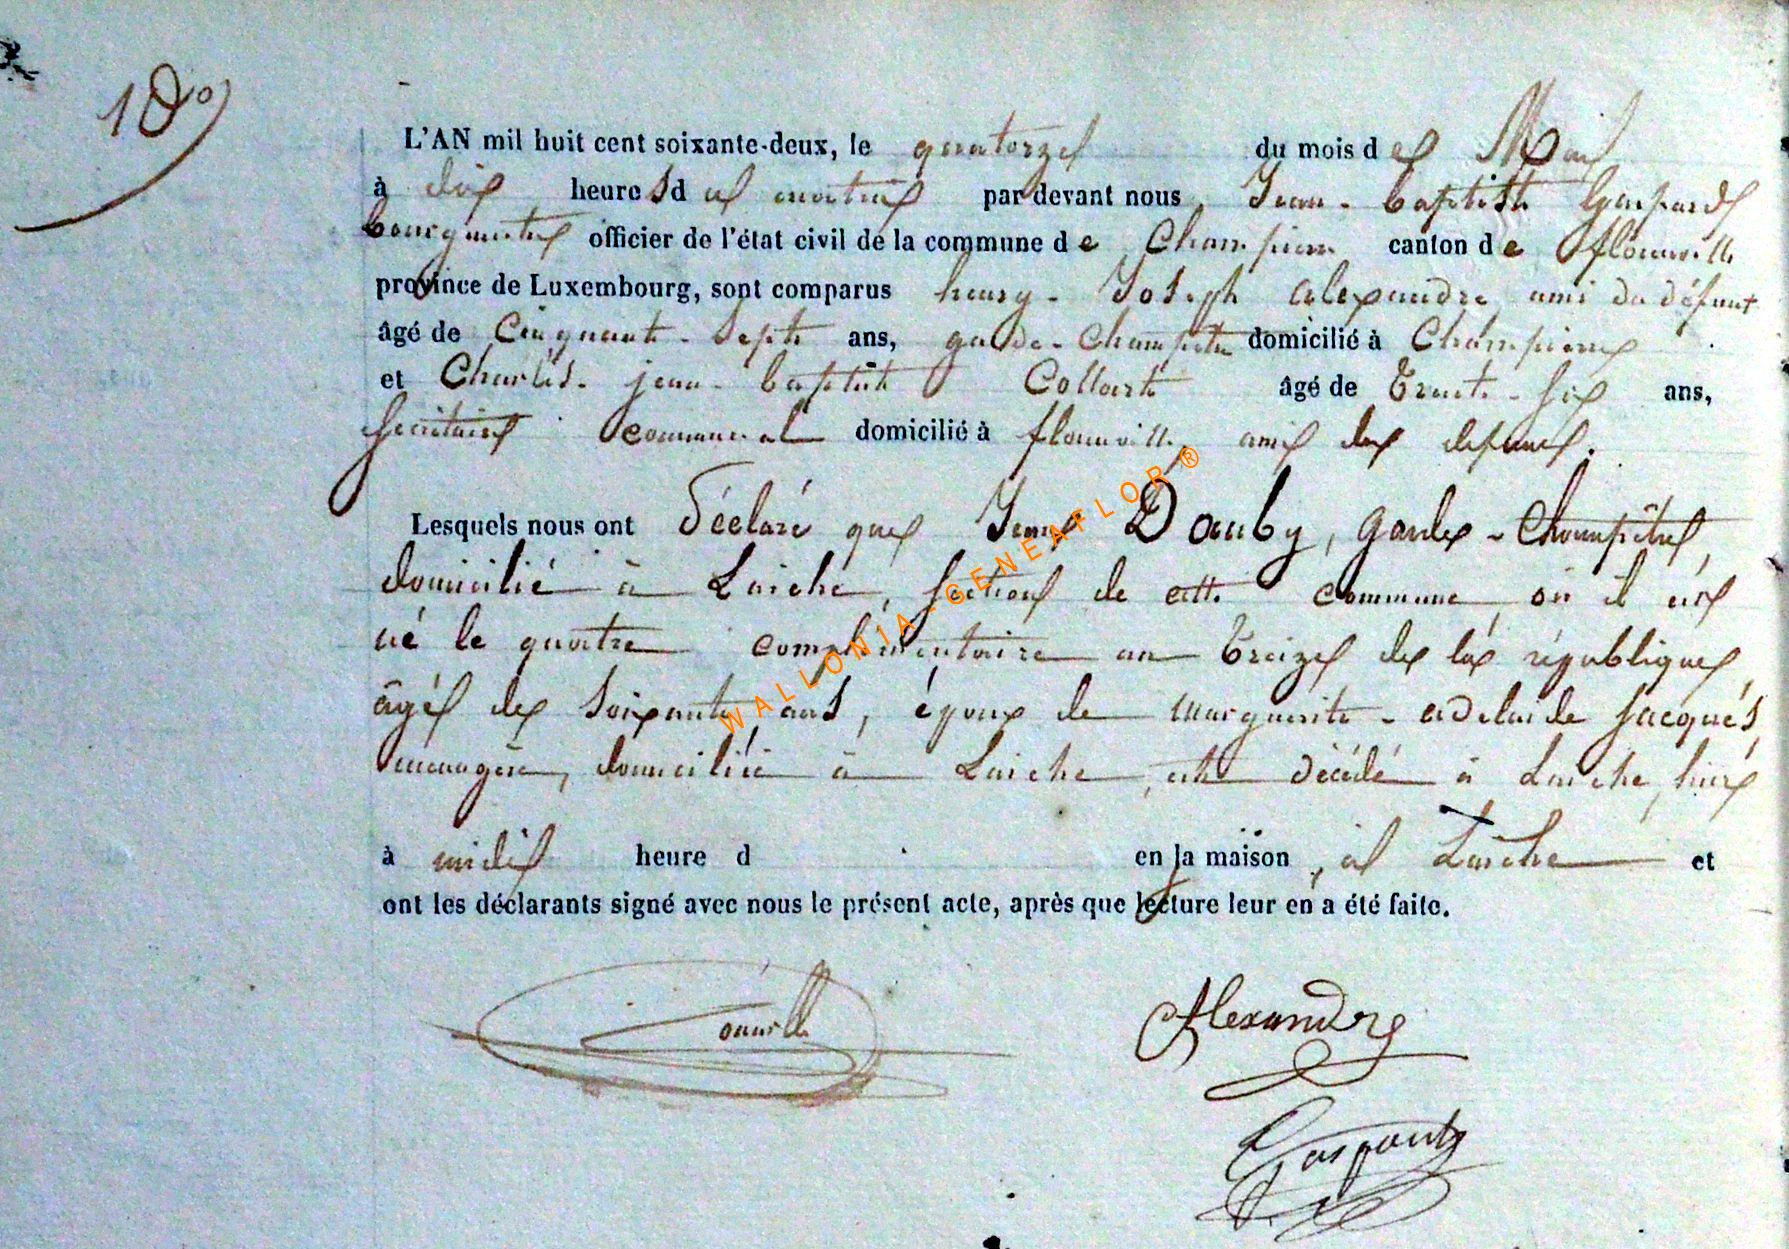 18º
L'AN mil huit cent soixante-deux, le quatorze du mois de Mai
à dix heures du matin par devant nous, Jean-baptiste Gaspard
bourgmestre officier de l'état civil de la commune de Chassepierre canton de florenville
province de Luxembourg, sont comparus henry-Joseph alexandre ami du défunt
âgé de Cinquante-sept ans, garde-champêtre domicilié à Chassepierre
et Charles-jean-baptiste Collart âgé de Trente-six ans,
secrétaire communal domicilié à florenville, ami du defunt.
Lesquels nous ont déclaré que Jean Dauby, garde-Champêtre,
domicilié à Laiche, section de cette commune, où il est
né le quatre complémentaire an Treize de la république,
âgé de Soixante ans, époux de marguerite-adelaïde jacques,
menagère, domiciliée à Laiche, est décédé à Laiche, hier
à midi heure d en la maison, à Laiche et
ont les déclarants signé avec nous le présent acte, après que lecture leur en a été faite.
Alexandre
WALLONIA-GENEAFLOR®